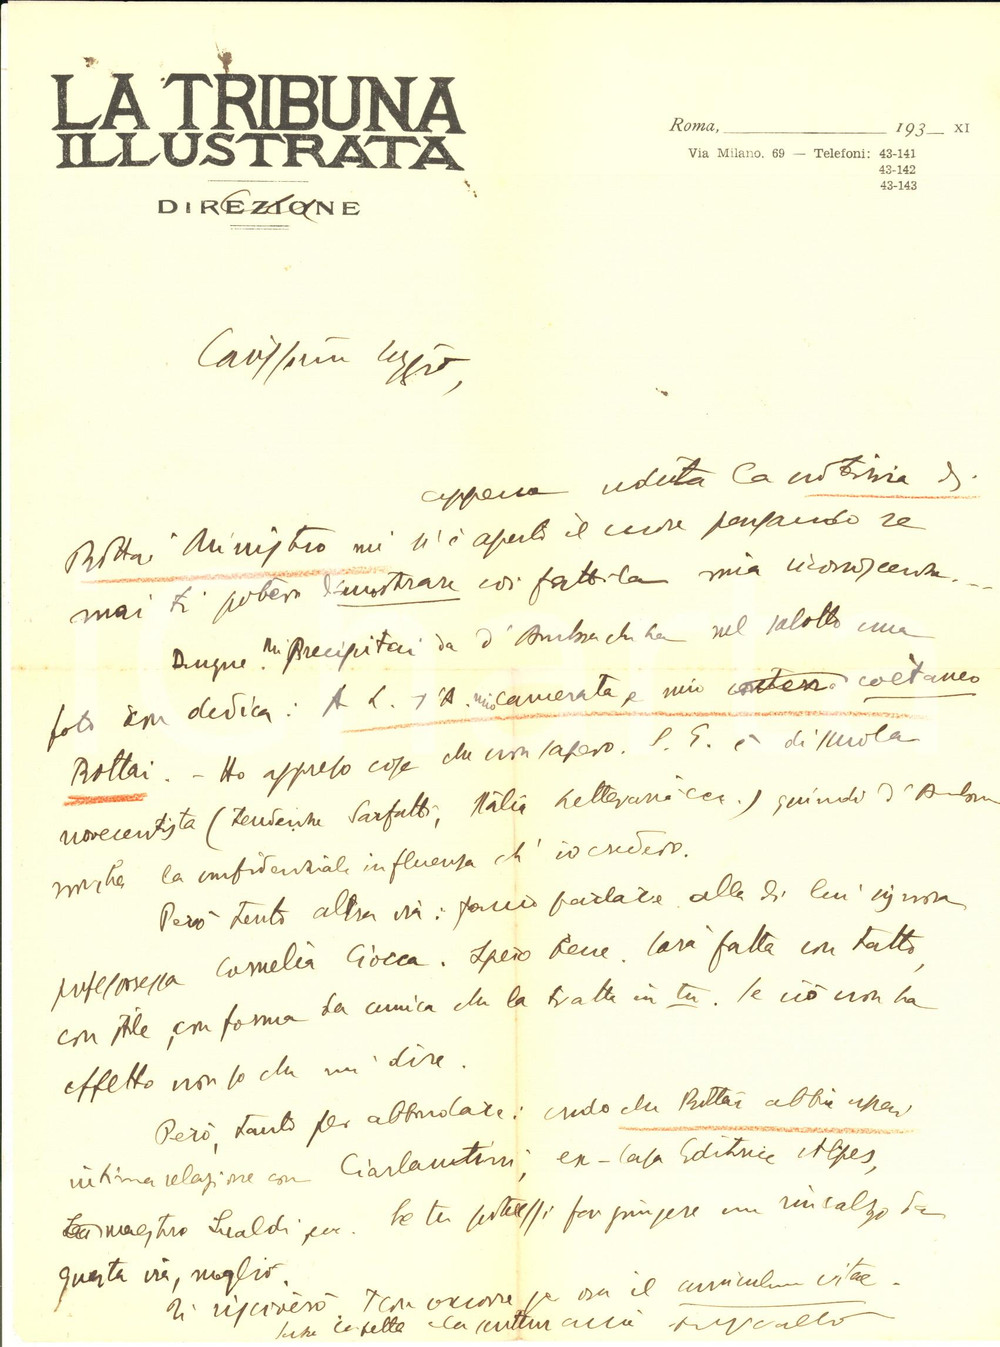 LA TRIBUNA
ILLUSTRATA
DIREZIONE
Roma, 193 XI
Via Milano, 69 — Telefoni: 43-141
43-142
43-143
appena la notizia di
Bottai Ministro mi s'è aperto il cuore pensando se
mai ti potevo dimostrare coi fatti la mia riconoscenza...
Dunque mi precipitai da d'Ambra che ha nel salotto una
foto con dedica: A L. d'A. mio camerata e mio coetaneo
Bottai. - Ho appreso cose che non sapevo. S. E. è di scuola
novecentista (tendenza Sarfatti, Italia Letteraria ecc.) quindi d'Ambra
non ha la confidenziale influenza ch' io credevo.
Però tento altra via: faccio parlare alla di lui signora
professoressa Cornelia Ciocca. Spero bene. Sarà fatta con tatto,
con stile, con forma da amica che la tratta in tu. Se ciò non ha
effetto non so che mi dire.
Però, tanto per abbondare: credo che Bottai abbia
intima relazione con Ciarlantini, ex-Casa Editrice Alpes,
maestro Lualdi, ecc. Se tu potessi far giungere un rincalzo da
questa via, meglio.
Ti riscriverò. occorre per ora il curriculum vitae.